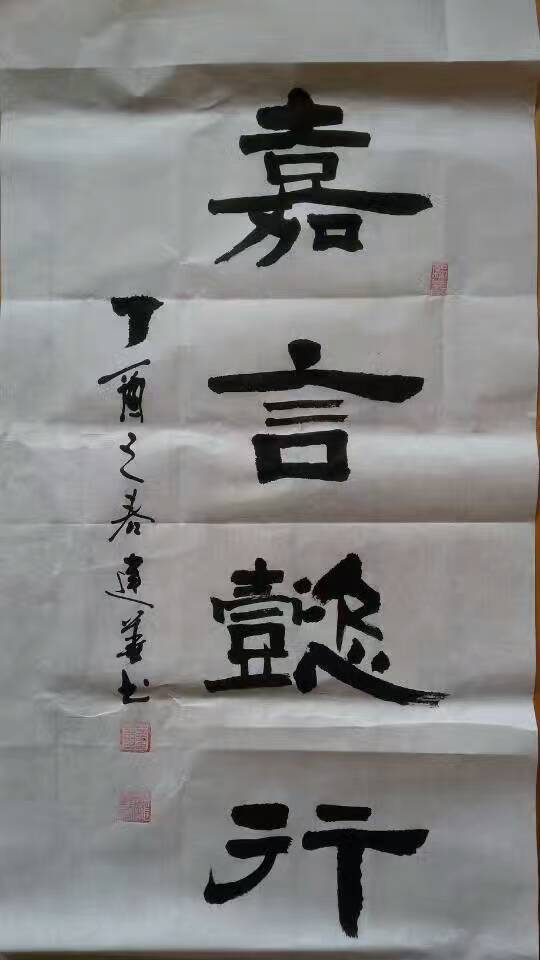 嘉言懿行
丁酉之春建華书